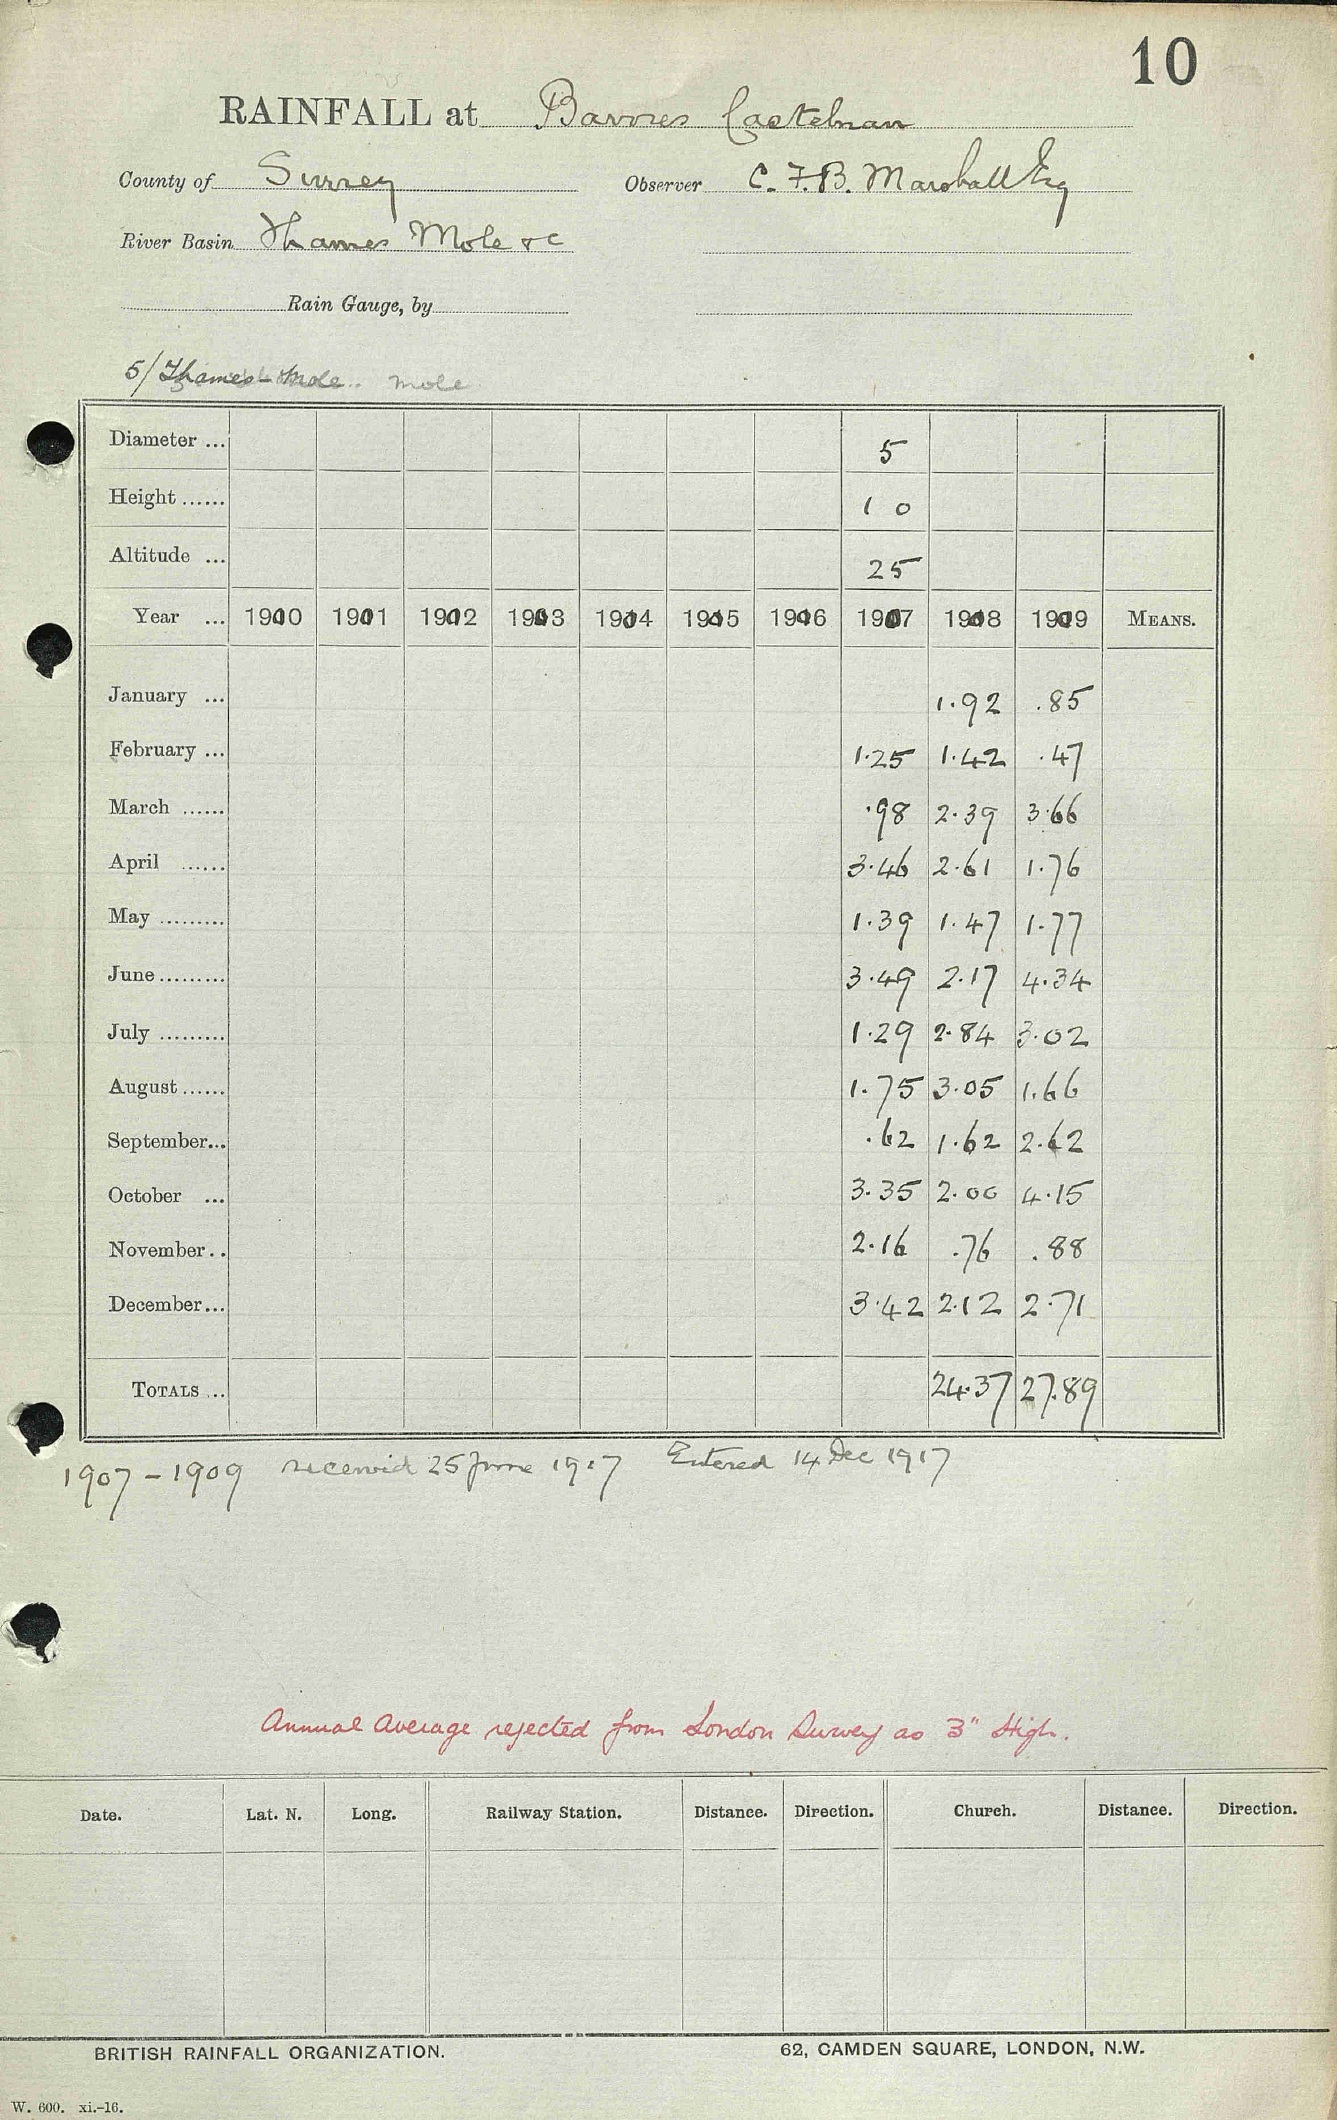 10
RAINFALL at Barnes Castelnau
County of Surrey Observer C. F. B. Marshall Esq
River Basin Thames Mole &c
Rain Gauge, by
5/ Thames - Mole.. Mole
Diameter ... 5
Height ...... 1 0
Altitude ... 25
Year ... 1900 1901 1902 1903 1904 1905 1906 1907 1908 1909 MEANS.
January ... 1.92 .85
February ... 1.25 1.42 .47
March ...... .98 2.39 3.66
April ...... 3.46 2.61 1.76
May ......... 1.39 1.47 1.77
June ......... 3.49 2.17 4.34
July ......... 1.29 2.84 3.02
August ...... 1.75 3.05 1.66
September... .62 1.62 2.62
October ... 3.35 2.00 4.15
November.. 2.16 .76 .88
December... 3.42 2.12 2.71
TOTALS ... 24.37 27.89
1907 - 1909 received 25 June 1917 Entered 14 Dec 1917
Annual Average rejected from London Survey as 3" High.
Date. Lat. N. Long. Railway Station. Distance. Direction. Church. Distance. Direction.
BRITISH RAINFALL ORGANIZATION. 62, CAMDEN SQUARE, LONDON, N.W.
W. 600. xi.-16.